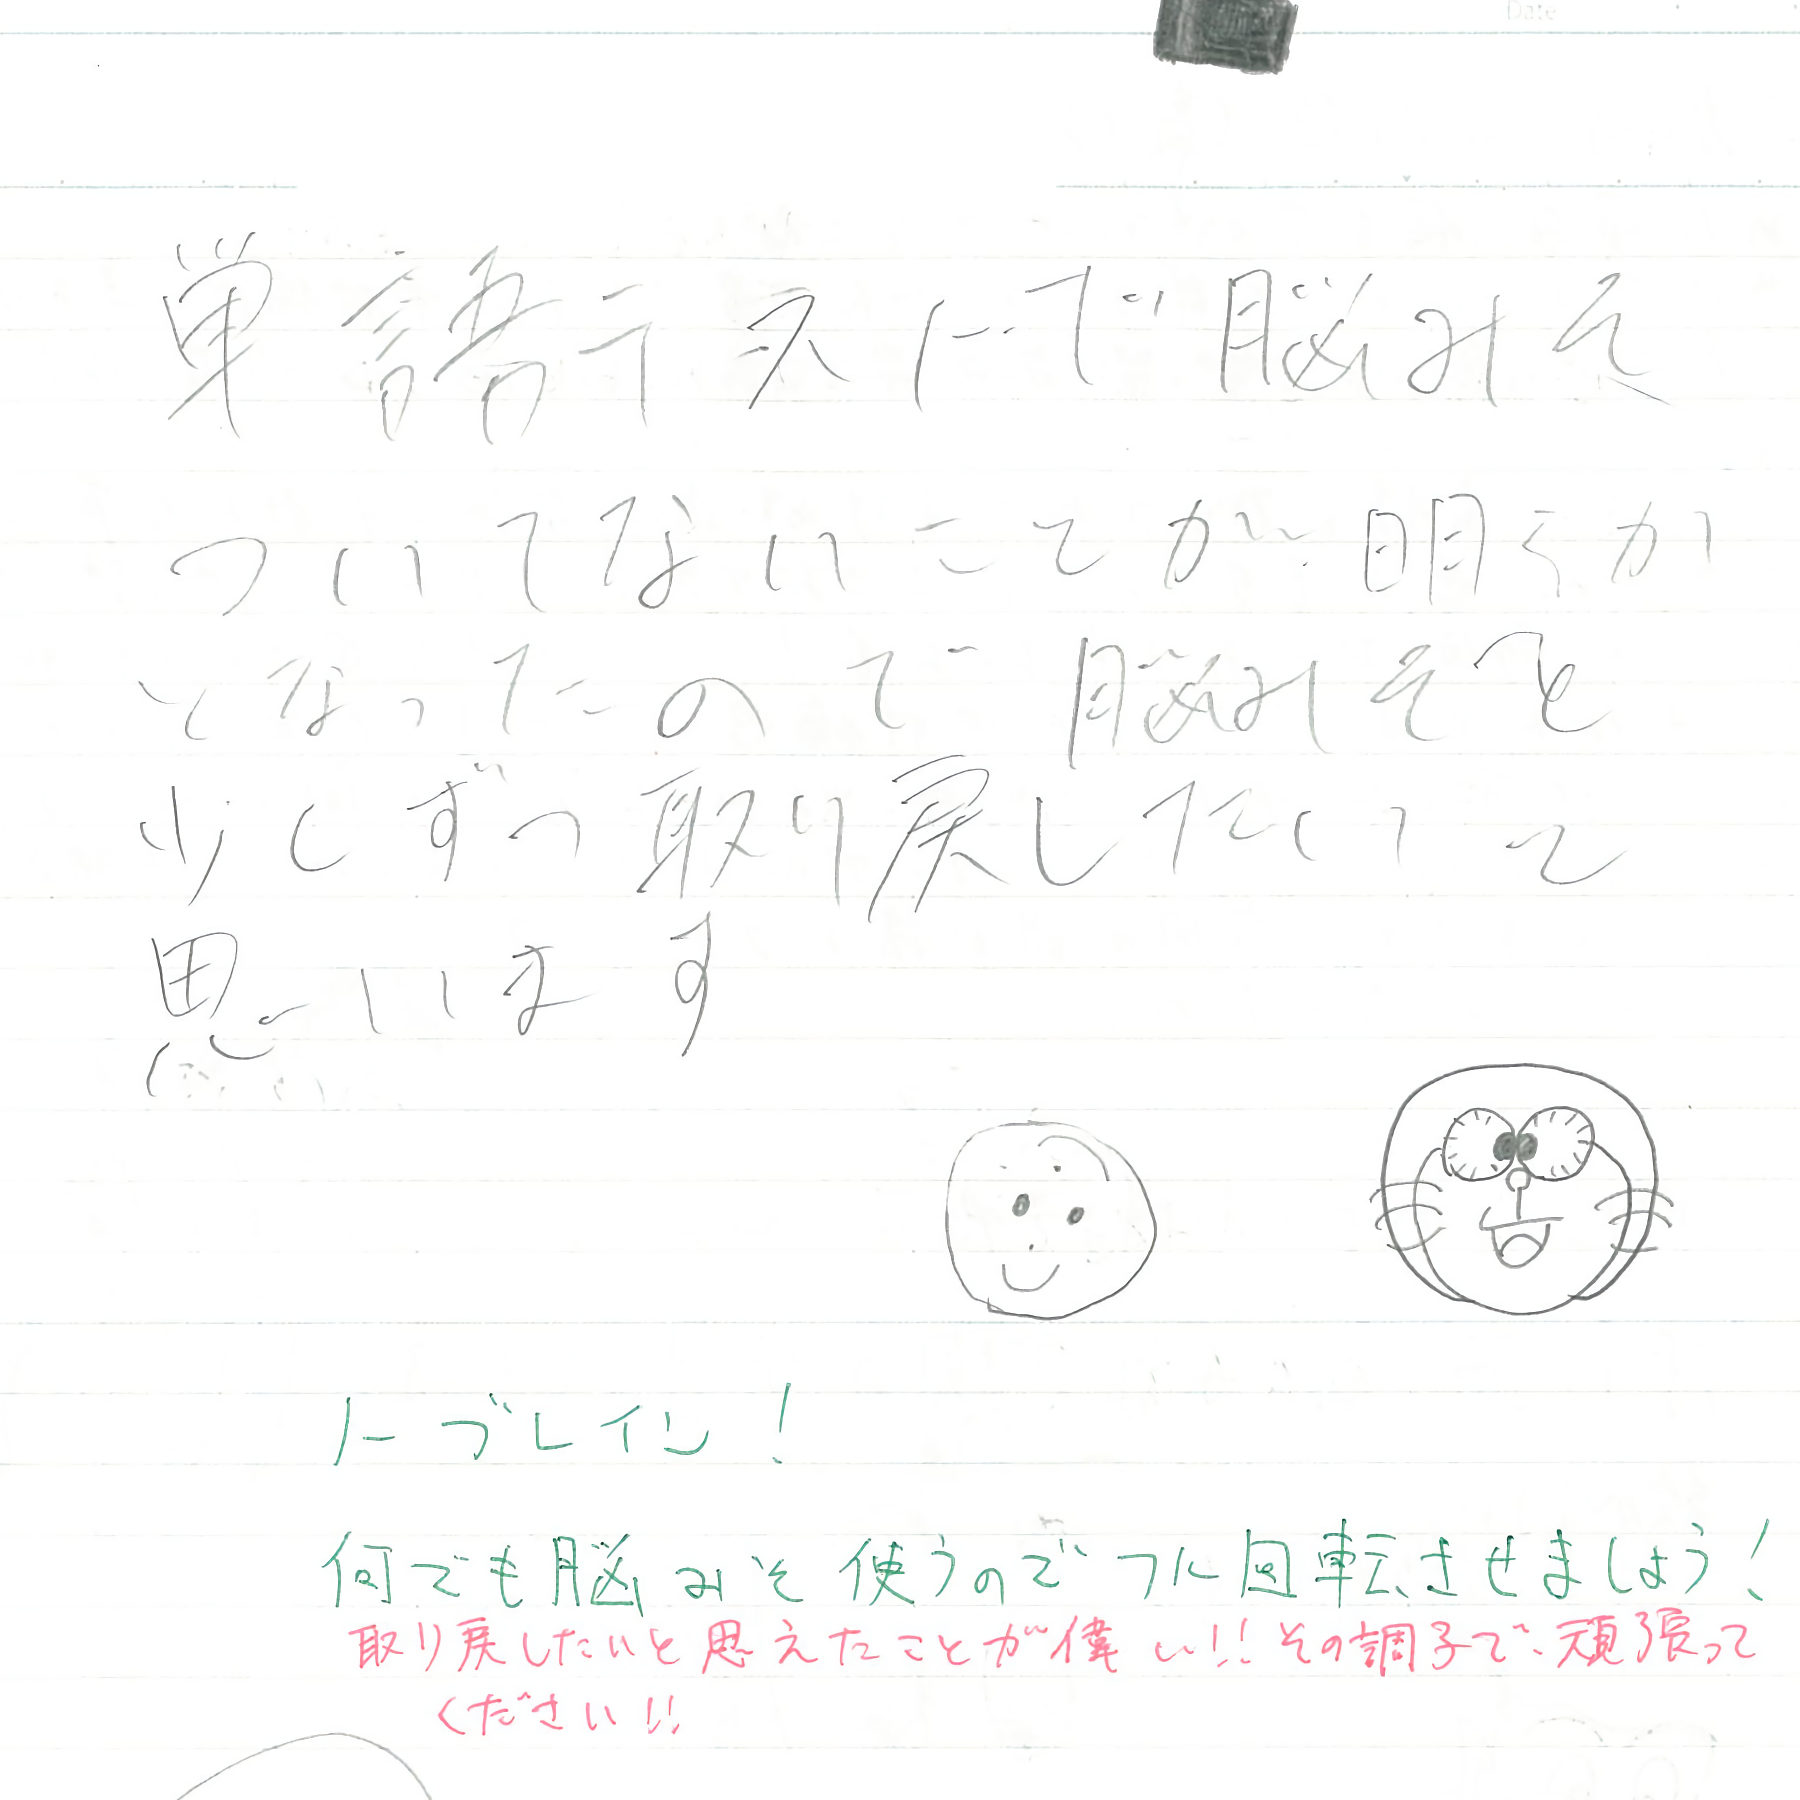 Date
単語テストで脳みそ
ついてないことが明らか
となったので脳みそを
少しずつ取り戻したいと
思います
ノーブレイン！
何でも脳みそ使うのでフルに回転させましょう！
取り戻したいと思えたことが偉い!!その調子で頑張って
ください!!